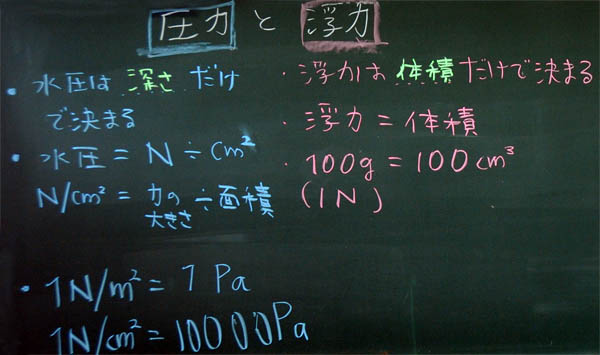 圧力と浮力
・水圧は深さだけ
で決まる
・水圧=N÷cm²
N/cm²=力の大きさ÷面積
・1N/m²=1Pa
1N/cm²=10000Pa
・浮力は体積だけで決まる
・浮力=体積
・100g=100cm³
(1N)